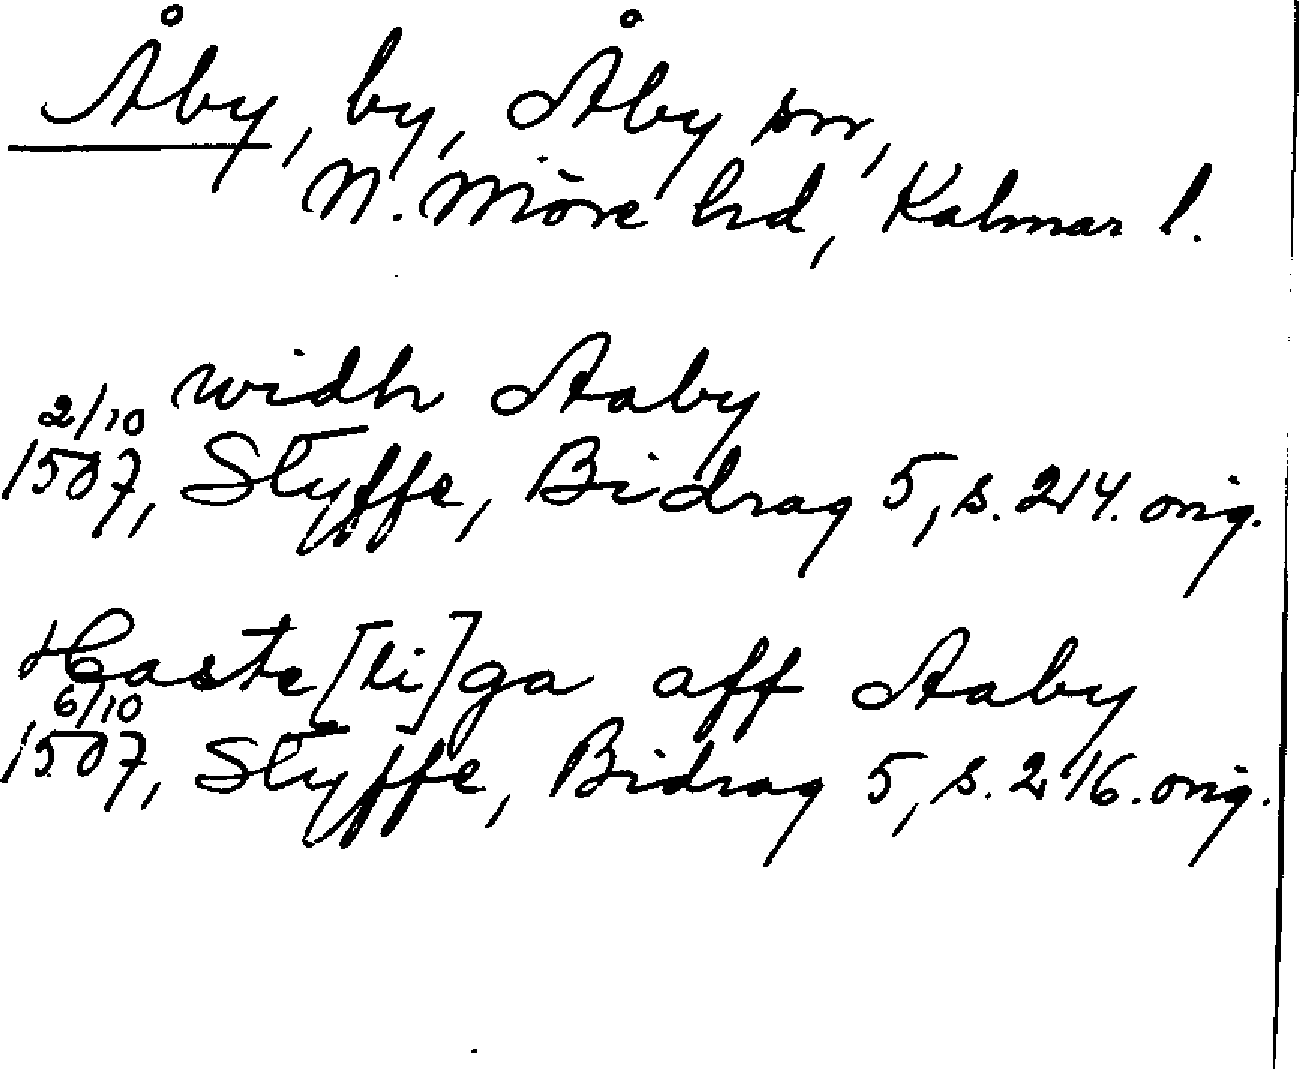 Åby, by, Åby sn,
N. Möre hd, Kalmar l.
widh Aaby
2/10
1507, Styffe, Bidrag 5, s. 214. orig.
Haste[li]ga aff Aaby
6/10
1507, Styffe, Bidrag 5, s. 216. orig.